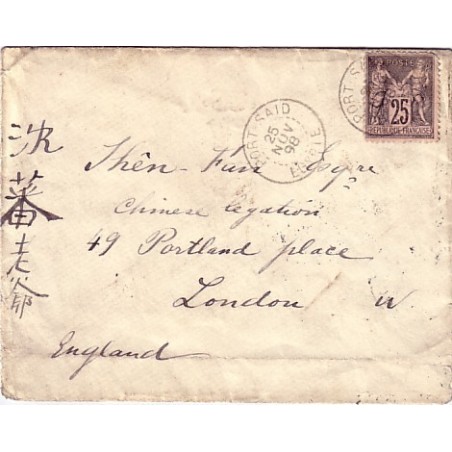 PORT-SAID
25
NOV
98
EGYPTE
PORT-SAID
POSTES
25
REPUBLIQUE FRANCAISE
Shên-Fan Esqre
Chinese legation
49 Portland place
London W
England
沈蕃老爺